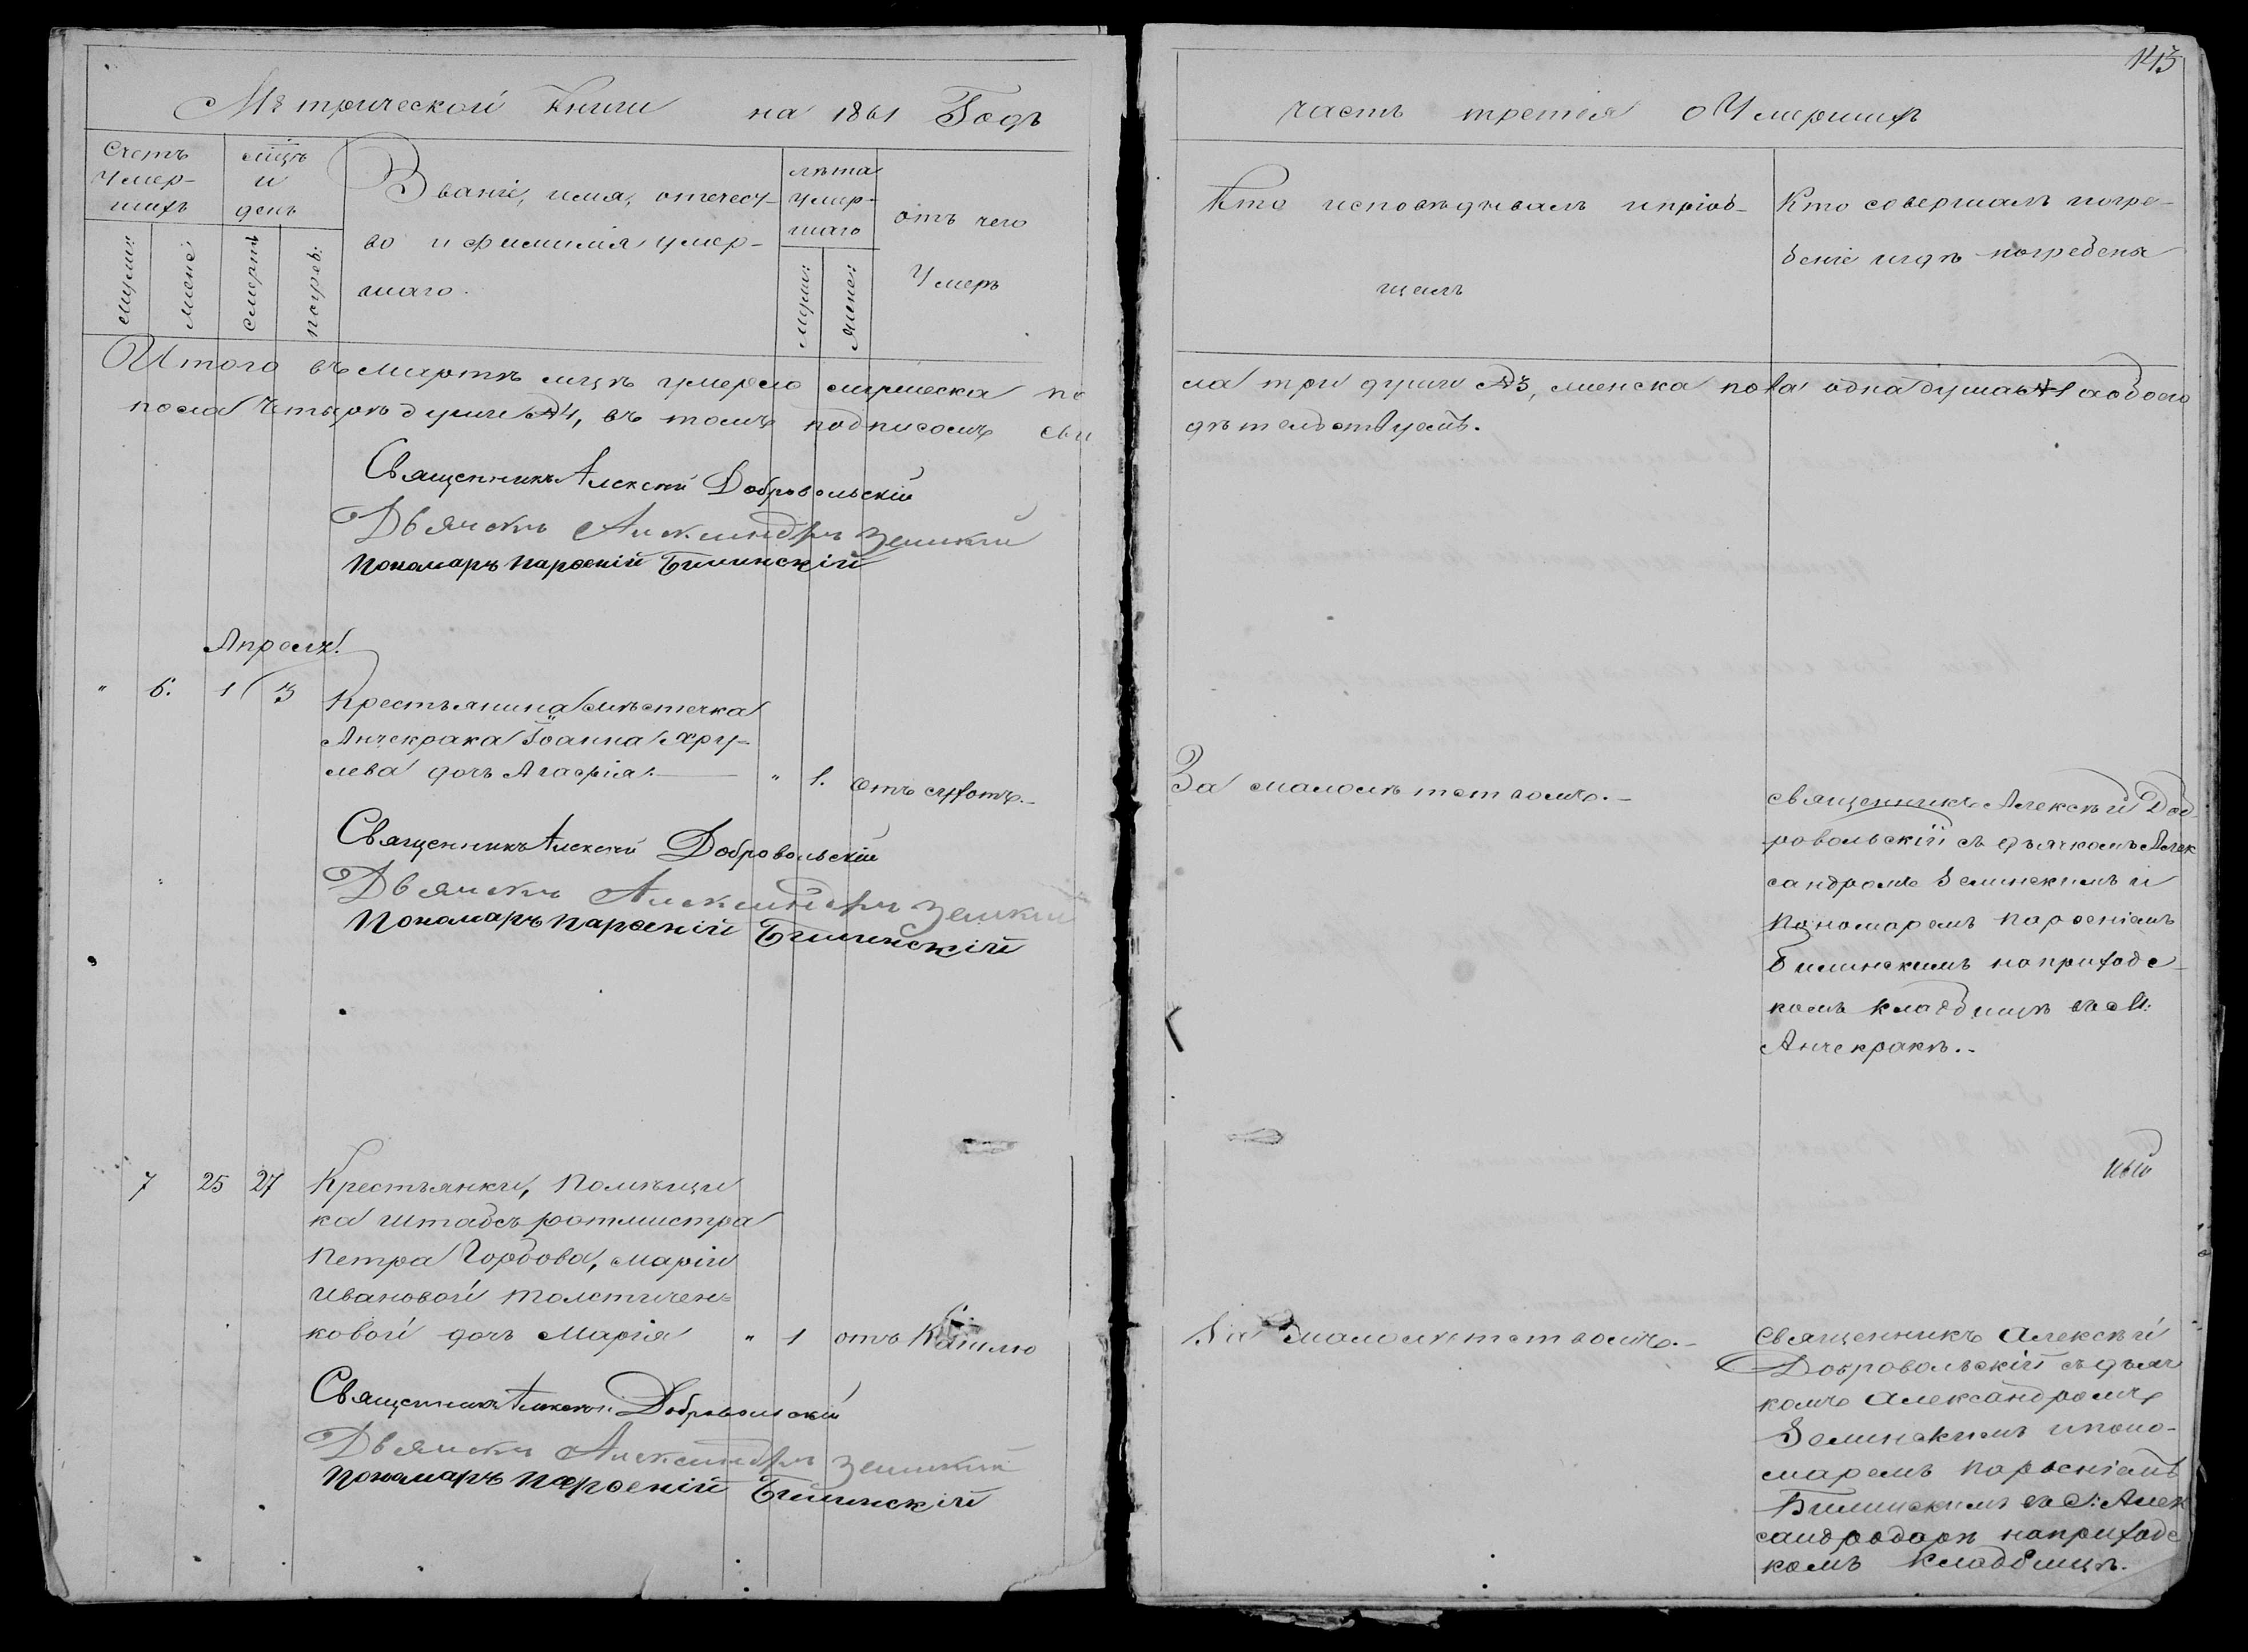 143
Метрической Книги на 1861 Годъ
часть третія о Умершихъ
Счетъ умер-шихъ
мцъ и день
Званіе, имя, отечест-
во и фимилія умер-
шаго.
лѣта умер-шаго
отъ чего
Умеръ
Кто исповѣдывалъ и пріоб-
щалъ
Кто совершалъ погре-
беніе и гдѣ погребены
мужеш:
женс:
смерти
погреб:
муже:
женс:
Итого въ мартѣ мцѣ умерло мужеска по
ла три души №3, женска пола одна душа №1 а обоего
пола четыре души №4, въ томъ подписомъ сви
дѣтельствуемъ.
Священникъ Алексій Добровольскій
Дьячекъ Александръ Зелинскій
Пономарь Парѳеній Билинскій
Апрель
" 6. 1 3 Крестьянина мѣстечка
Анчекрака Іоанна Хру-
лева дочь Агафія. " 1. Отъ сухотъ.
За малолѣтствомъ.
священникъ Алексѣй Доб
ровольскій съ дьячкомъ Алек
сандромъ Зелинскимъ и
Пономаремъ Парѳеніемъ
Билинскимъ на приходс-
комъ кладбищѣ въ М:
Анчекракѣ.
Священникъ Алексій Добровольскій
Дьячекъ Александръ Зелинскій
Пономарь Парѳеній Билинскій
7 25 27 Крестьянки, Помѣщи
ка штабсъ ротмистра
Петра Горбова, Маріи
Ивановой Толстичен-
ковой дочь Марія " 1 отъ Кашлю
За малолѣтствомъ.
Священникъ Алексѣй
Добровольскій съ дьяч
комъ Александромъ
Зелинскимъ и поно-
маремъ Парѳеніемъ
Билинскимъ въ С: Алек
сандродарѣ на приходс
комъ Кладбищѣ.
Священникъ Алексій Добровольскій
Дьячекъ Александръ Зелинскій
Пономарь Парѳеній Билинскій